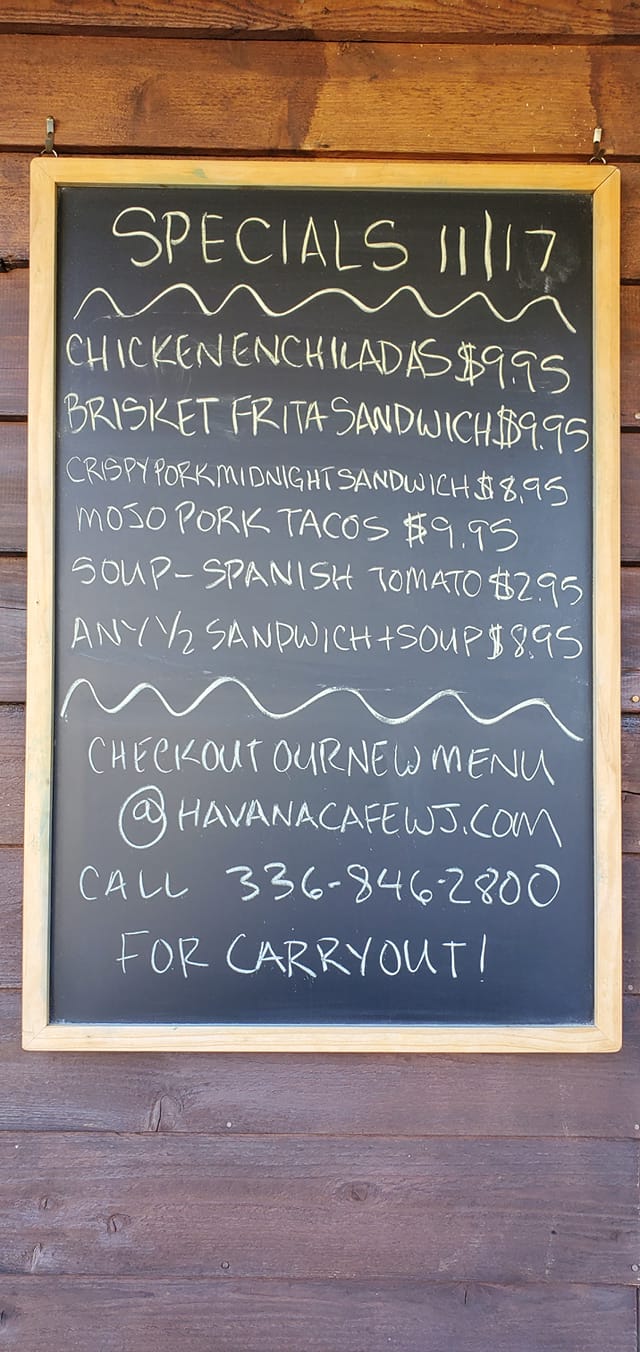 SPECIALS 11/17
CHICKEN ENCHILADAS $9.95
BRISKET FRITA SANDWICH $9.95
CRISPY PORK MIDNIGHT SANDWICH $8.95
MOJO PORK TACOS $9.95
SOUP - SPANISH TOMATO $2.95
ANY 1/2 SANDWICH + SOUP $8.95
CHECKOUT OUR NEW MENU
@ HAVANACAFEWJ.COM
CALL 336-846-2800
FOR CARRYOUT!